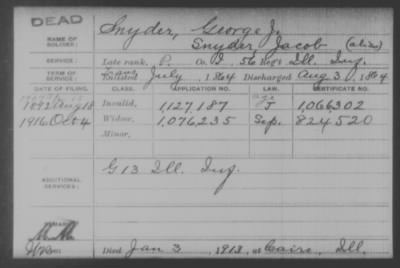 DEAD
NAME OF SOLDIER: Snyder, George J.
Snyder, Jacob (alias)
SERVICE: Late rank, P. Co. I, 56 Reg't Ill. Inf.
TERM OF SERVICE: Enlisted July, 1864 Discharged Aug 3, 1864
DATE OF FILING. CLASS. APPLICATION NO. LAW. CERTIFICATE NO.
1892 Aug 18 Invalid, 1,127,187 J 1,066302
1916 Oct 4 Widow, 1,076,235 Sep. 824,520
Minor,
ADDITIONAL SERVICES: G 13 Ill. Inf.
REMARKS:
Died Jan 3, 1913, at Cairo, Ill.